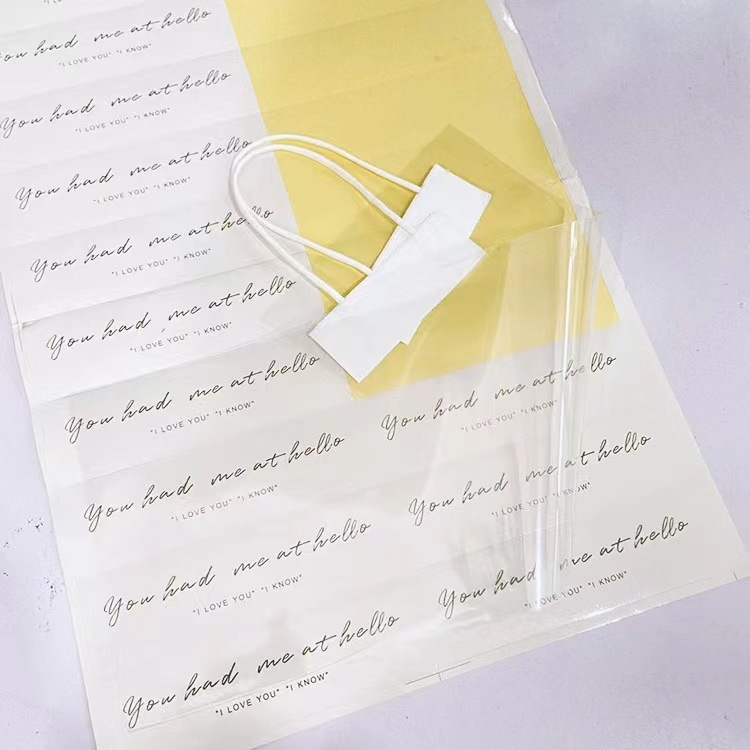 You had me at hello
"I LOVE YOU" "I KNOW"
You had me at hello
"I LOVE YOU" "I KNOW"
You had me at hello
"I LOVE YOU" "I KNOW"
You had me at hello
"I LOVE YOU" "I KNOW"
You had me at hello
"I LOVE YOU" "I KNOW"
You had me at hello
"I LOVE YOU" "I KNOW"
You had me at hello
"I LOVE YOU" "I KNOW"
You had me at hello
"I LOVE YOU" "I KNOW"
You had me at hello
"I LOVE YOU" "I KNOW"
You had me at hello
"I LOVE YOU" "I KNOW"
You had me at hello
"I LOVE YOU" "I KNOW"
You had me at hello
"I LOVE YOU" "I KNOW"